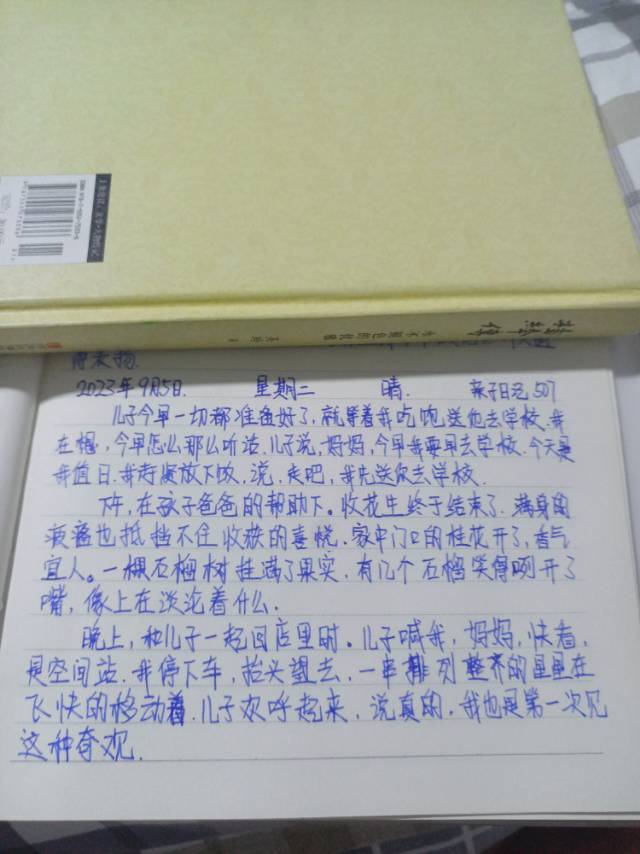 得失物.
2023年9月5日. 星期二 晴. 亲子日记507
儿子今早一切都准备好了,就等着我吃饱送他去学校.我
在想,今早怎么那么听话.儿子说,妈妈,今早我要早去学校.今天是
我值日.我赶紧放下饭,说,走吧,我先送你去学校.
下午,在孩子爸爸的帮助下.收花生终于结束了.满身的
疲惫也抵挡不住收获的喜悦.家中门口的桂花开了,香气
宜人。一棵石榴树挂满了果实.有几个石榴笑得咧开了
嘴,像上在谈论着什么.
晚上,和儿子一起回店里时。儿子喊我,妈妈,快看,
是空间站.我停下车,抬头望去,一串排列整齐的星星在
飞快的移动着.儿子欢呼起来,说真的.我也是第一次见
这种奇观.